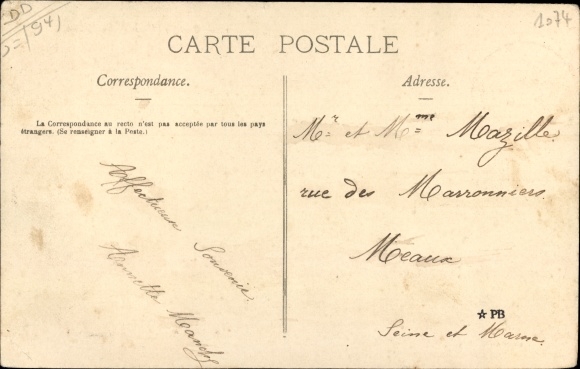 1074
CARTE POSTALE
Correspondance.
La Correspondance au recto n'est pas acceptée par tous les pays
étrangers. (Se renseigner à la Poste.)
Affectueux Souvenir
Annette
Adresse.
Mr et Mme Mazille
rue des Marronniers
Meaux
☆ PB
Seine et Marne.